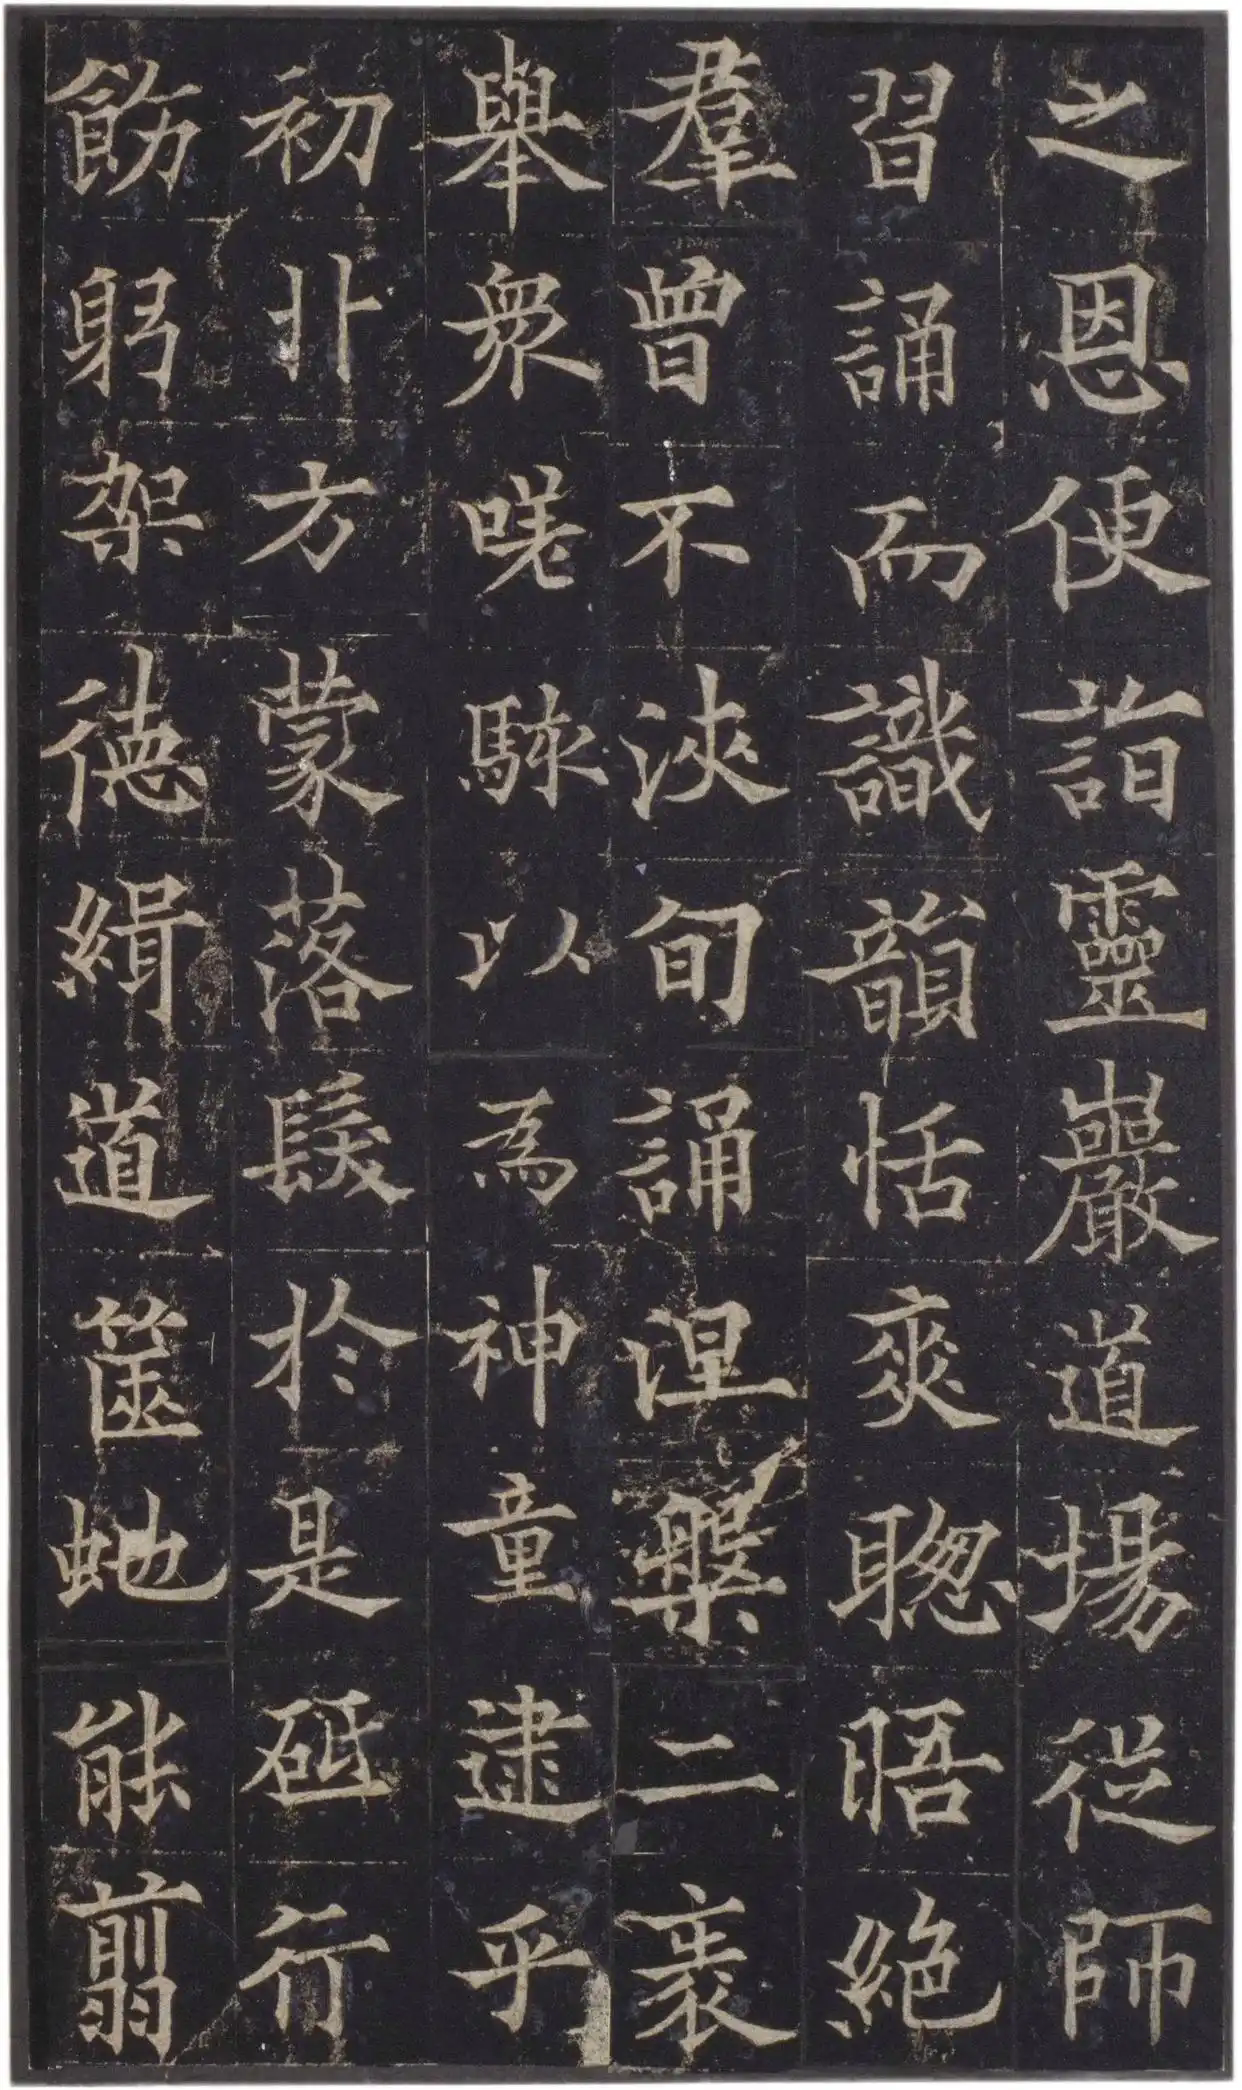 之恩便詣靈巖道場從師
習誦而識韻恬爽聰晤絕
羣曾不浹旬誦涅槃二袠
舉衆嗟駭以為神童逮乎
初丱方蒙落髮於是砥行
飭躬架德緝道篋虵能翦